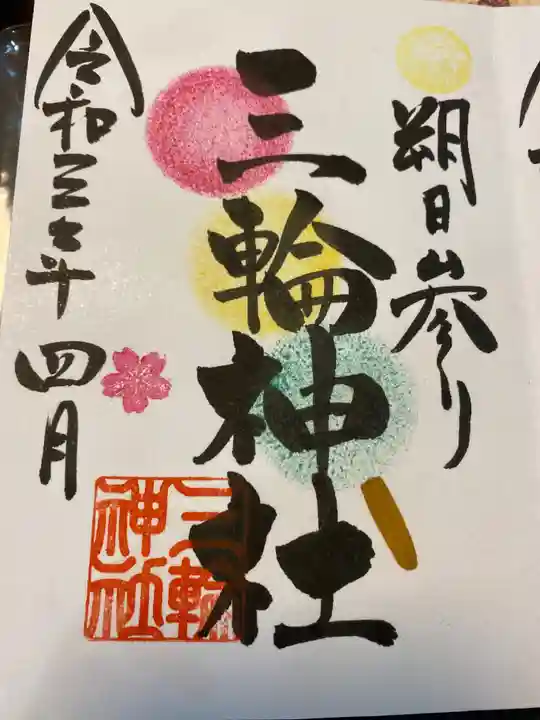 朔日参り
三輪神社
令和三年四月
三輪神社